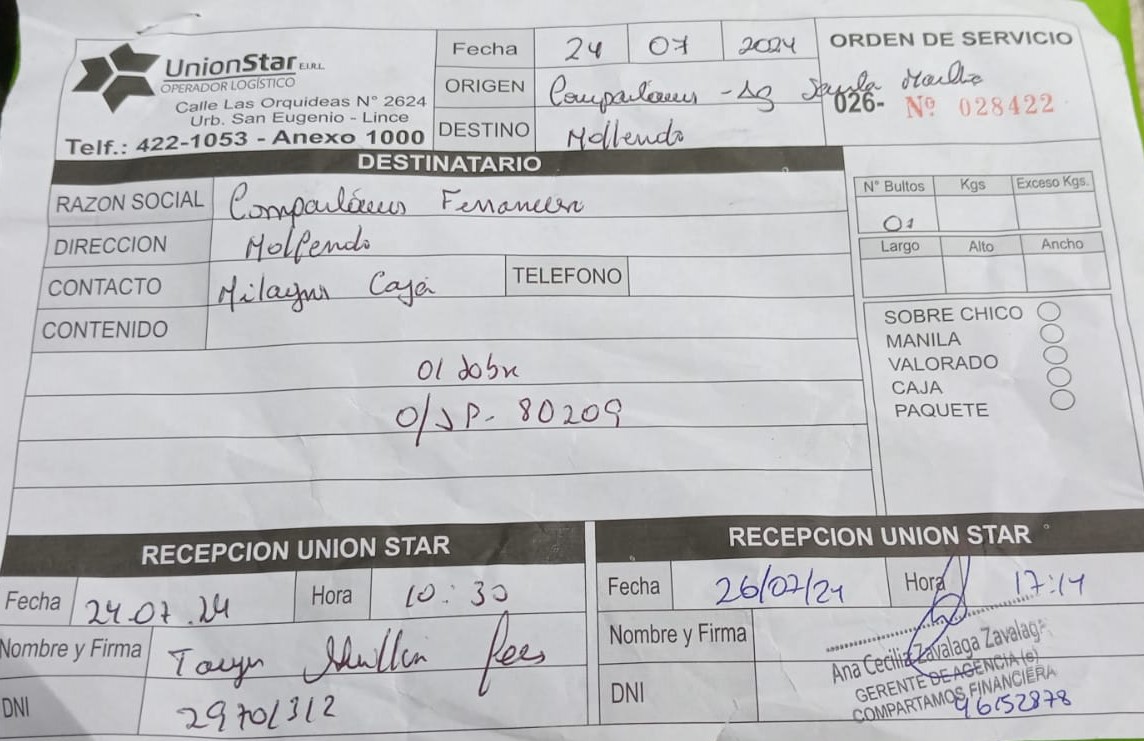 UnionStar E.I.R.L
OPERADOR LOGÍSTICO
Calle Las Orquideas N° 2624
Urb. San Eugenio - Lince
Telf.: 422-1053 - Anexo 1000
Fecha 24 07 2024
ORIGEN Compartamos - Ag
DESTINO Mollendo
ORDEN DE SERVICIO
026- Nº 028422
DESTINATARIO
RAZON SOCIAL Compartamos Financiera
DIRECCION Mollendo
CONTACTO Milagros TELEFONO
CONTENIDO
01 sobre
80209
N° Bultos Kgs Exceso Kgs.
01
Largo Alto Ancho
SOBRE CHICO
MANILA
VALORADO
CAJA
PAQUETE
RECEPCION UNION STAR
Fecha 24.07.24 Hora 10:30
Nombre y Firma
DNI 29701312
RECEPCION UNION STAR
Fecha 26/07/24 Hora 17:14
Nombre y Firma
Ana Cecilia Zavalaga Zavalaga
DNI
GERENTE DE AGENCIA (e)
COMPARTAMOS FINANCIERA